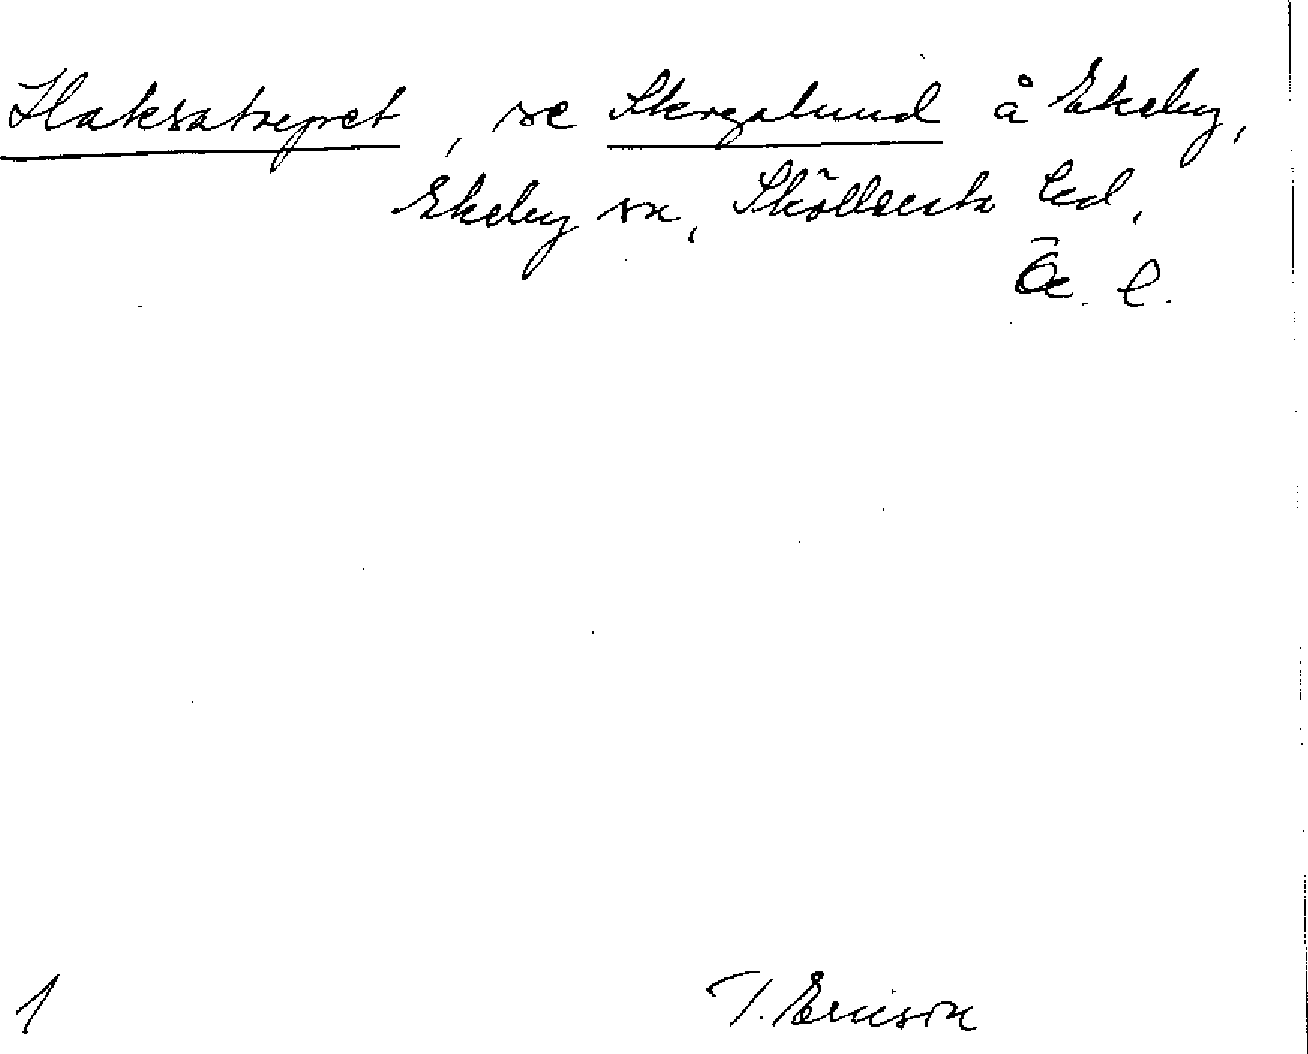 Slaksatorpet, se Skogalund å Ekeby,
Ekeby sn, Sköllersta hd,
Ör. l.
1 T. Ericson